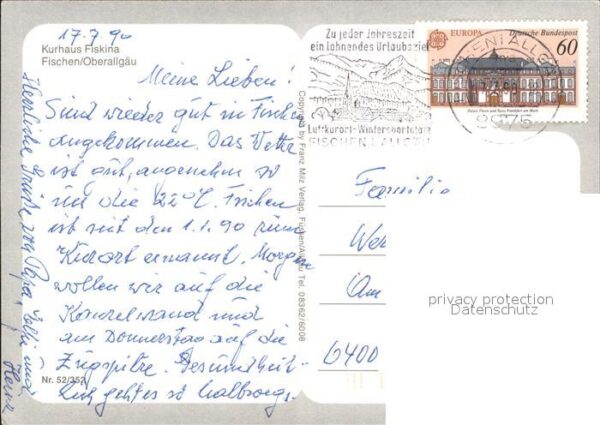 17.7.90
Kurhaus Fiskina
Fischen/Oberallgäu
Meine Lieben!
Sind wieder gut in Fischen
angekommen. Das Wetter
ist gut, angenehm so
um die 22°C. Fischen
ist seit den 1.1.90 zum
Kurort ernannt. Morgen
wollen wir auf die
Kanzelwand und
am Donnerstag auf die
Zugspitze. Gesundheit-
lich geht es so halbwegs.
Herzliche Grüße von Papa, und
Heinz
Nr. 52/352
Copyright by Franz Milz Verlag, Füssen/Allgäu Tel. 08362/6008
Zu jeder Jahreszeit
ein lohnendes Urlaubsziel
Luftkurort-Wintersportplatz
FISCHEN I. ALLGÄU
EUROPA Deutsche Bundespost
60
FISCHEN I ALLGÄU
8975
Familie
Wer
Am
6400
privacy protection
Datenschutz